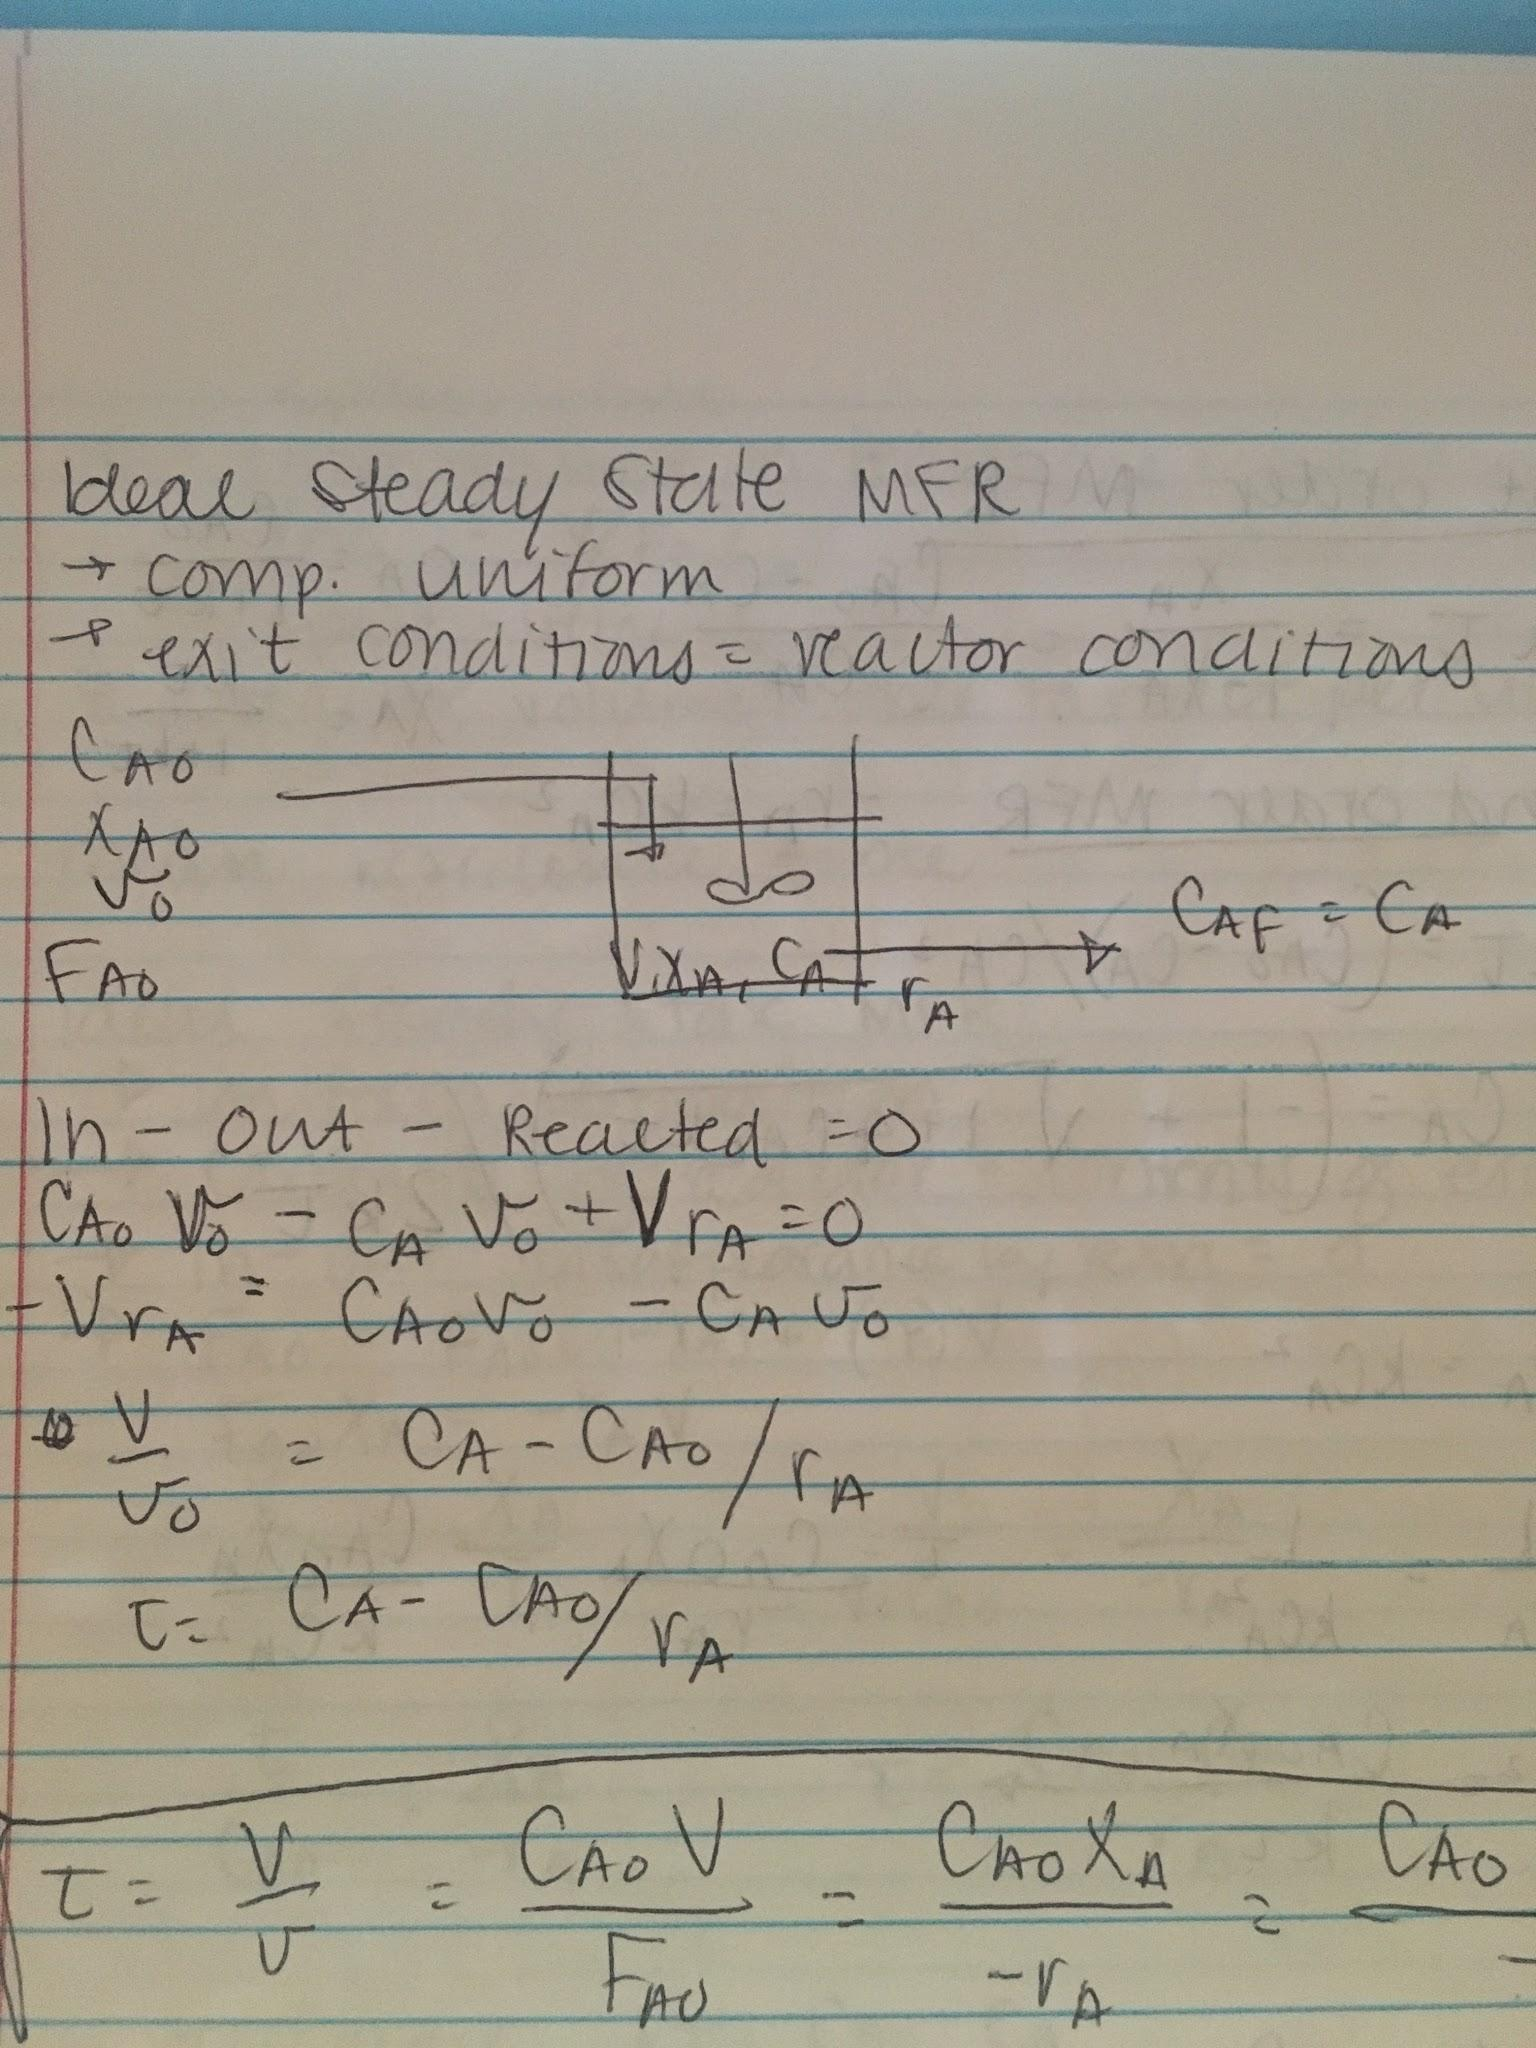 Ideal Steady State MFR
→ comp. uniform
→ exit conditions = reactor conditions
C_A0
X_A0
v_0
F_A0
V, X_A, C_A
r_A
C_AF = C_A
In - Out - Reacted = 0
C_A0 v_0 - C_A v_0 + V r_A = 0
-V r_A = C_A0 v_0 - C_A v_0
V/v_0 = C_A - C_A0 / r_A
τ = C_A - C_A0 / r_A
τ = V/v = C_A0 V / F_A0 = C_A0 X_A / -r_A = C_A0